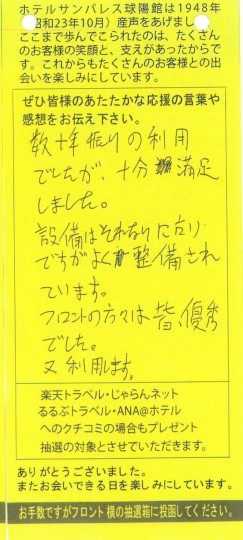 ホテルサンパレス球陽館は1948年
(昭和23年10月)産声をあげまし
ここまで歩んでこられたのは、たくさん
のお客様の笑顔と、支えがあったからで
す。これからもたくさんのお客様との出
会いを楽しみにしています。
ぜひ皆様のあたたかな応援の言葉や
感想をお伝え下さい。
数十年振りの利用
でしたが、十分満足
しました。
設備はそれなりに古り
ですがよく整備され
ています。
フロントの方々は皆、優秀
でした。
又利用します。
楽天トラベル・じゃらんネット
るるぶトラベル・ANA@ホテル
へのクチコミの場合もプレゼント
抽選の対象とさせていただきます。
ありがとうございました。
またお会いできる日を楽しみにしています。
お手数ですがフロント横の抽選箱に投函してください。